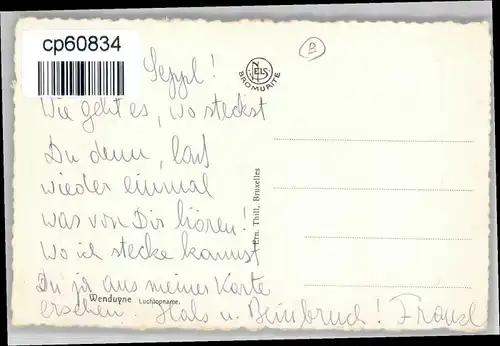 cp60834
Seppl!
Wie geht es, wo steckst
Du denn, laß
wieder einmal
was von Dir hören!
Wo ich stecke kannst
Du ja aus meiner Karte
ersehen. Hals u. Beinbruch! Franzl
Wenduyne Luchtopname.
Ern. Thill, Bruxelles
NELS
BROMURITE
B